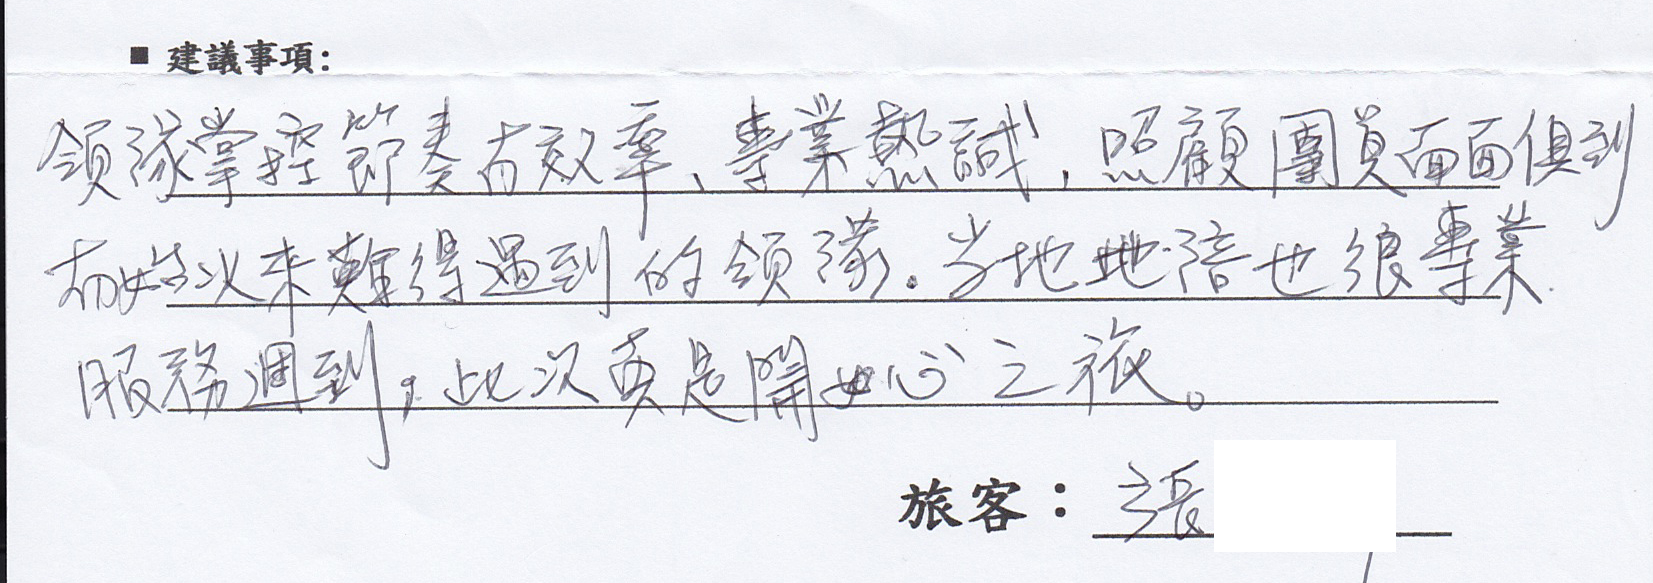 ■ 建議事項:
領隊掌控節奏有效率、專業熱誠,照顧團員面面俱到
有始以來難得遇到的領隊。当地地陪也很專業.
服務週到,此次真是開心之旅。
旅客:張